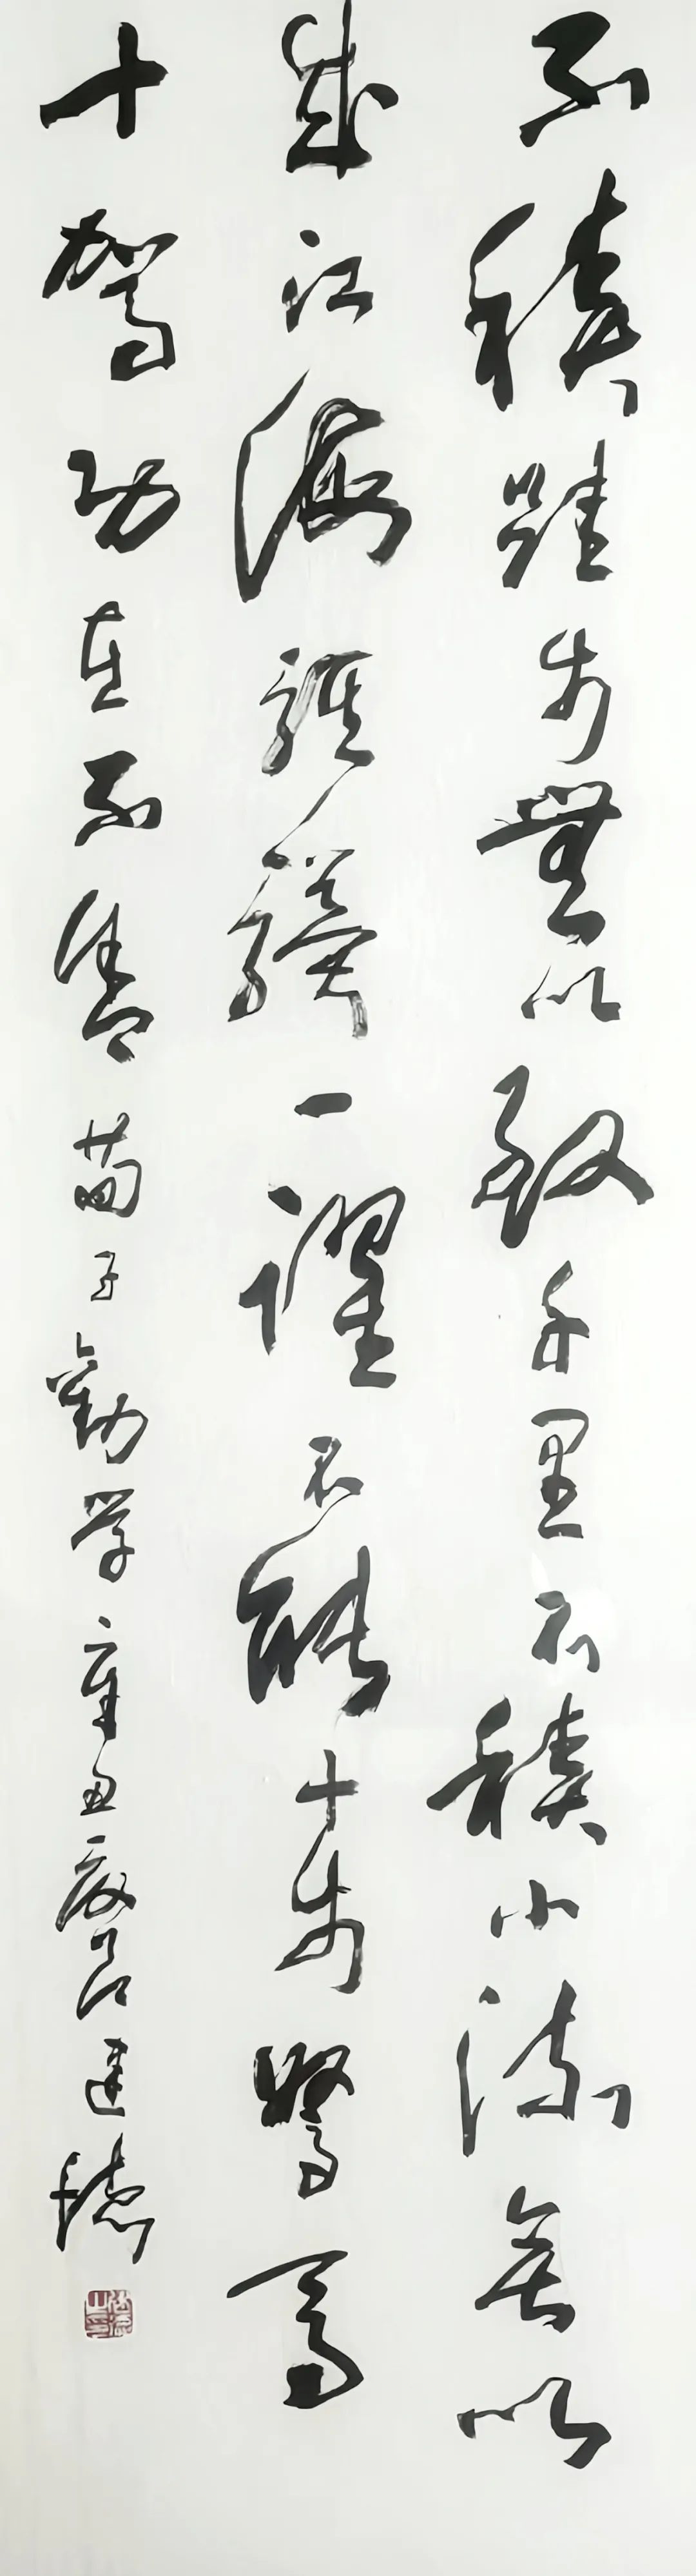 不積跬步無以致千里不積小流無以
成江海騏驥一躍不能十步駑馬
十駕功在不舍荀子勸学辛丑建德